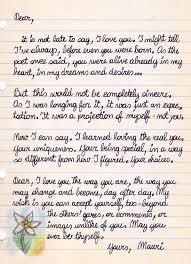 Dear,
it is not late to say, I love you. I might tell
I've always, before even you were born. As the
poet once said, you were alive already in my
heart, in my dreams and desires...
But this would not be completely sincere.
As I was longing for it, it was just an expec-
tation. It was a projection of myself - not you.
Now I can say, I learned loving the real you,
Your uniqueness. Your being special, in a way
so different from how I figured. Your choices.
Dear, I love you the way you are, the way you
may change and become, day after day. My
wish is you can accept yourself, too - beyond
the others' gazes, or comments, or
images unlike of you. May you
ever be thyself.
Yours, Mauri